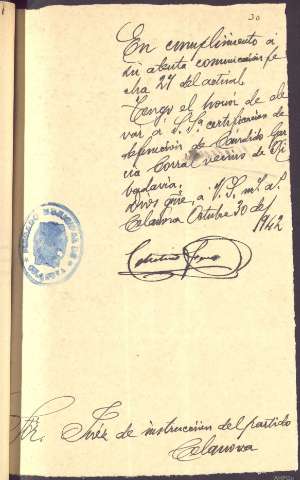 30
En cumplimiento a
su atenta comunicación fe
cha 27 del actual,
Tengo el honor de ele
var a S. Sª certificación de
defunción de Cándido Gar
cia Corral vecino de Ri
badavia.
Dios gde. a V. S. m. a.
Celanova Octubre 30 de
1942
Sr. Juéz de instrucción del partido
Celanova